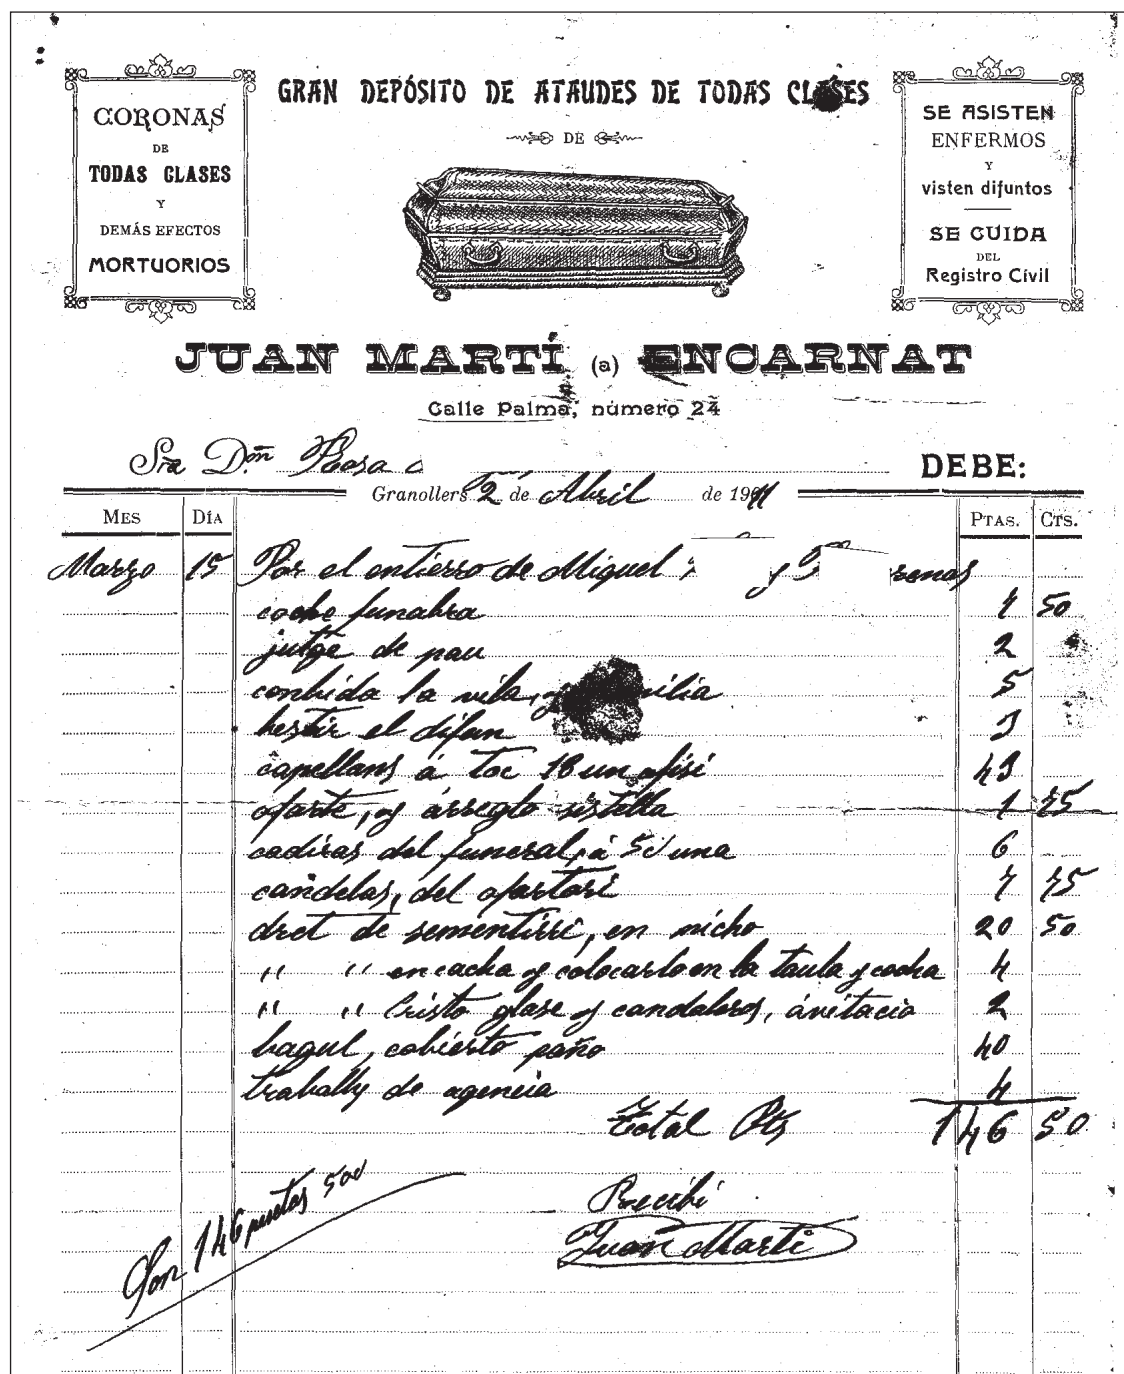 GRAN DEPÓSITO DE ATAUDES DE TODAS CLASES
DE
CORONAS
DE
TODAS CLASES
Y
DEMÁS EFECTOS
MORTUORIOS
SE ASISTEN
ENFERMOS
Y
visten difuntos
SE CUIDA
DEL
Registro Civil
JUAN MARTÍ (a) ENCARNAT
Calle Palma, número 24
Sra Dñn Rosa
DEBE:
Granollers 2 de Abril de 1911
MES DÍA PTAS. CTS.
Marzo 15 Por el entierro de Miguel y
coche funabra 4 50
jutge de pau 2
conbida la vila, y 5
bestir el difun 3
capellans á toc 18 un ofisi 43
ofarte, y árreglo sistella 1 75
cadiras del funeral, á una 6
candelas, del ofartori 7 75
dret de sementirri, en nicho 20 50
" " en cacha y colocarlo en la taula y cocha 4
" " Cristo glase y candaleros, ávitacio 2
bagul, cobierto paño 40
trabally de agencia 4
Total Pts 146 50
Recibí
Juan Marti
Son 146 pesetas 50